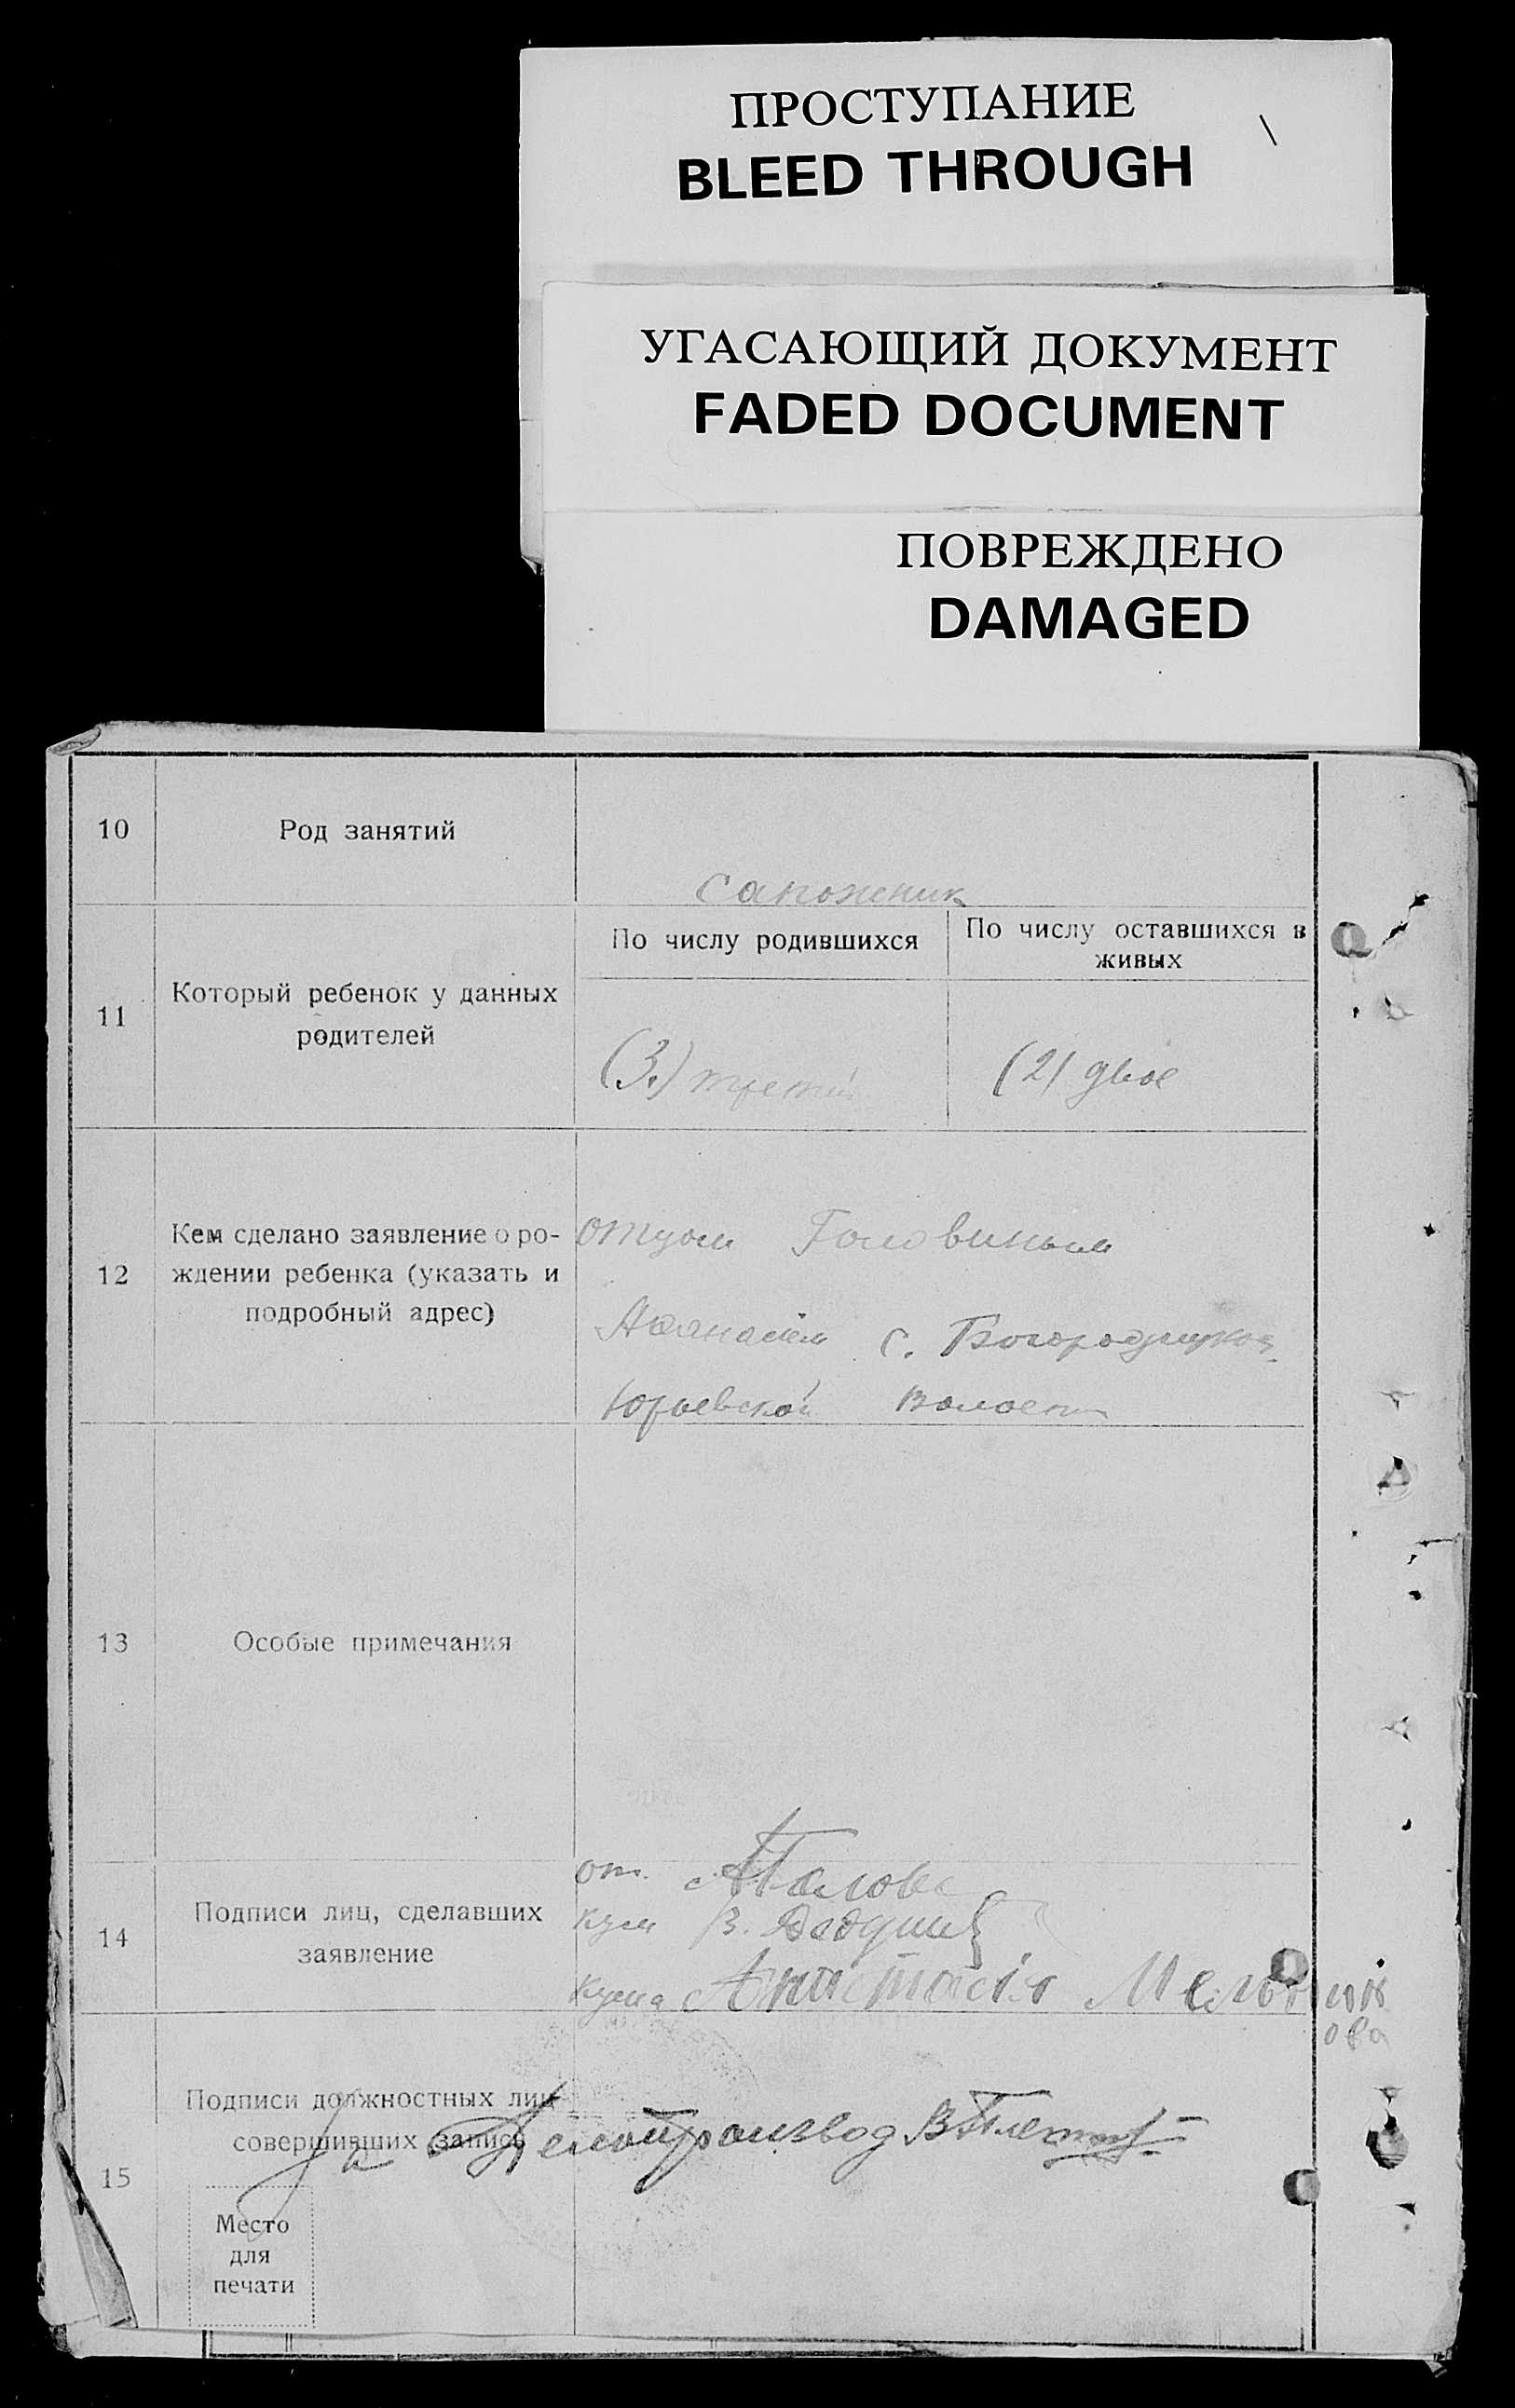 ПРОСТУПАНИЕ
BLEED THROUGH
УГАСАЮЩИЙ ДОКУМЕНТ
FADED DOCUMENT
ПОВРЕЖДЕНО
DAMAGED
10
Род занятий
сапожник
11
Который ребенок у данных
родителей
По числу родившихся
По числу оставшихся в
живых
(3.) третий
(2) двое
12
Кем сделано заявление о ро-
ждении ребенка (указать и
подробный адрес)
отцом Головиным
с. Богородицкое
Юрьевской Волости
13
Особые примечания
14
Подписи лиц, сделавших
заявление
от.
кум В.
кума Анастасія Мельник
ова
15
Подписи должностных лиц
совершивших запись
За Делопроизвод
Место
для
печати